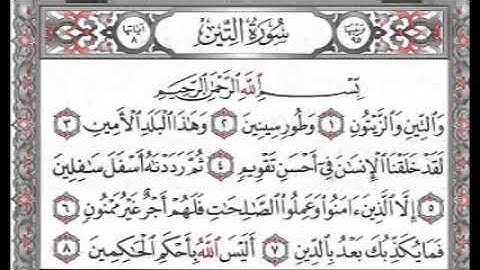 ترتيبها ٩٥ سُورَةُ التِّينِ آياتها ٨
بِسْمِ اللَّهِ الرَّحْمَٰنِ الرَّحِيمِ
وَالتِّينِ وَالزَّيْتُونِ ١ وَطُورِ سِينِينَ ٢ وَهَٰذَا الْبَلَدِ الْأَمِينِ ٣
لَقَدْ خَلَقْنَا الْإِنسَٰنَ فِي أَحْسَنِ تَقْوِيمٍ ٤ ثُمَّ رَدَدْنَٰهُ أَسْفَلَ سَٰفِلِينَ
٥ إِلَّا الَّذِينَ ءَامَنُوا وَعَمِلُوا الصَّٰلِحَٰتِ فَلَهُمْ أَجْرٌ غَيْرُ مَمْنُونٍ ٦
فَمَا يُكَذِّبُكَ بَعْدُ بِالدِّينِ ٧ أَلَيْسَ اللَّهُ بِأَحْكَمِ الْحَٰكِمِينَ ٨